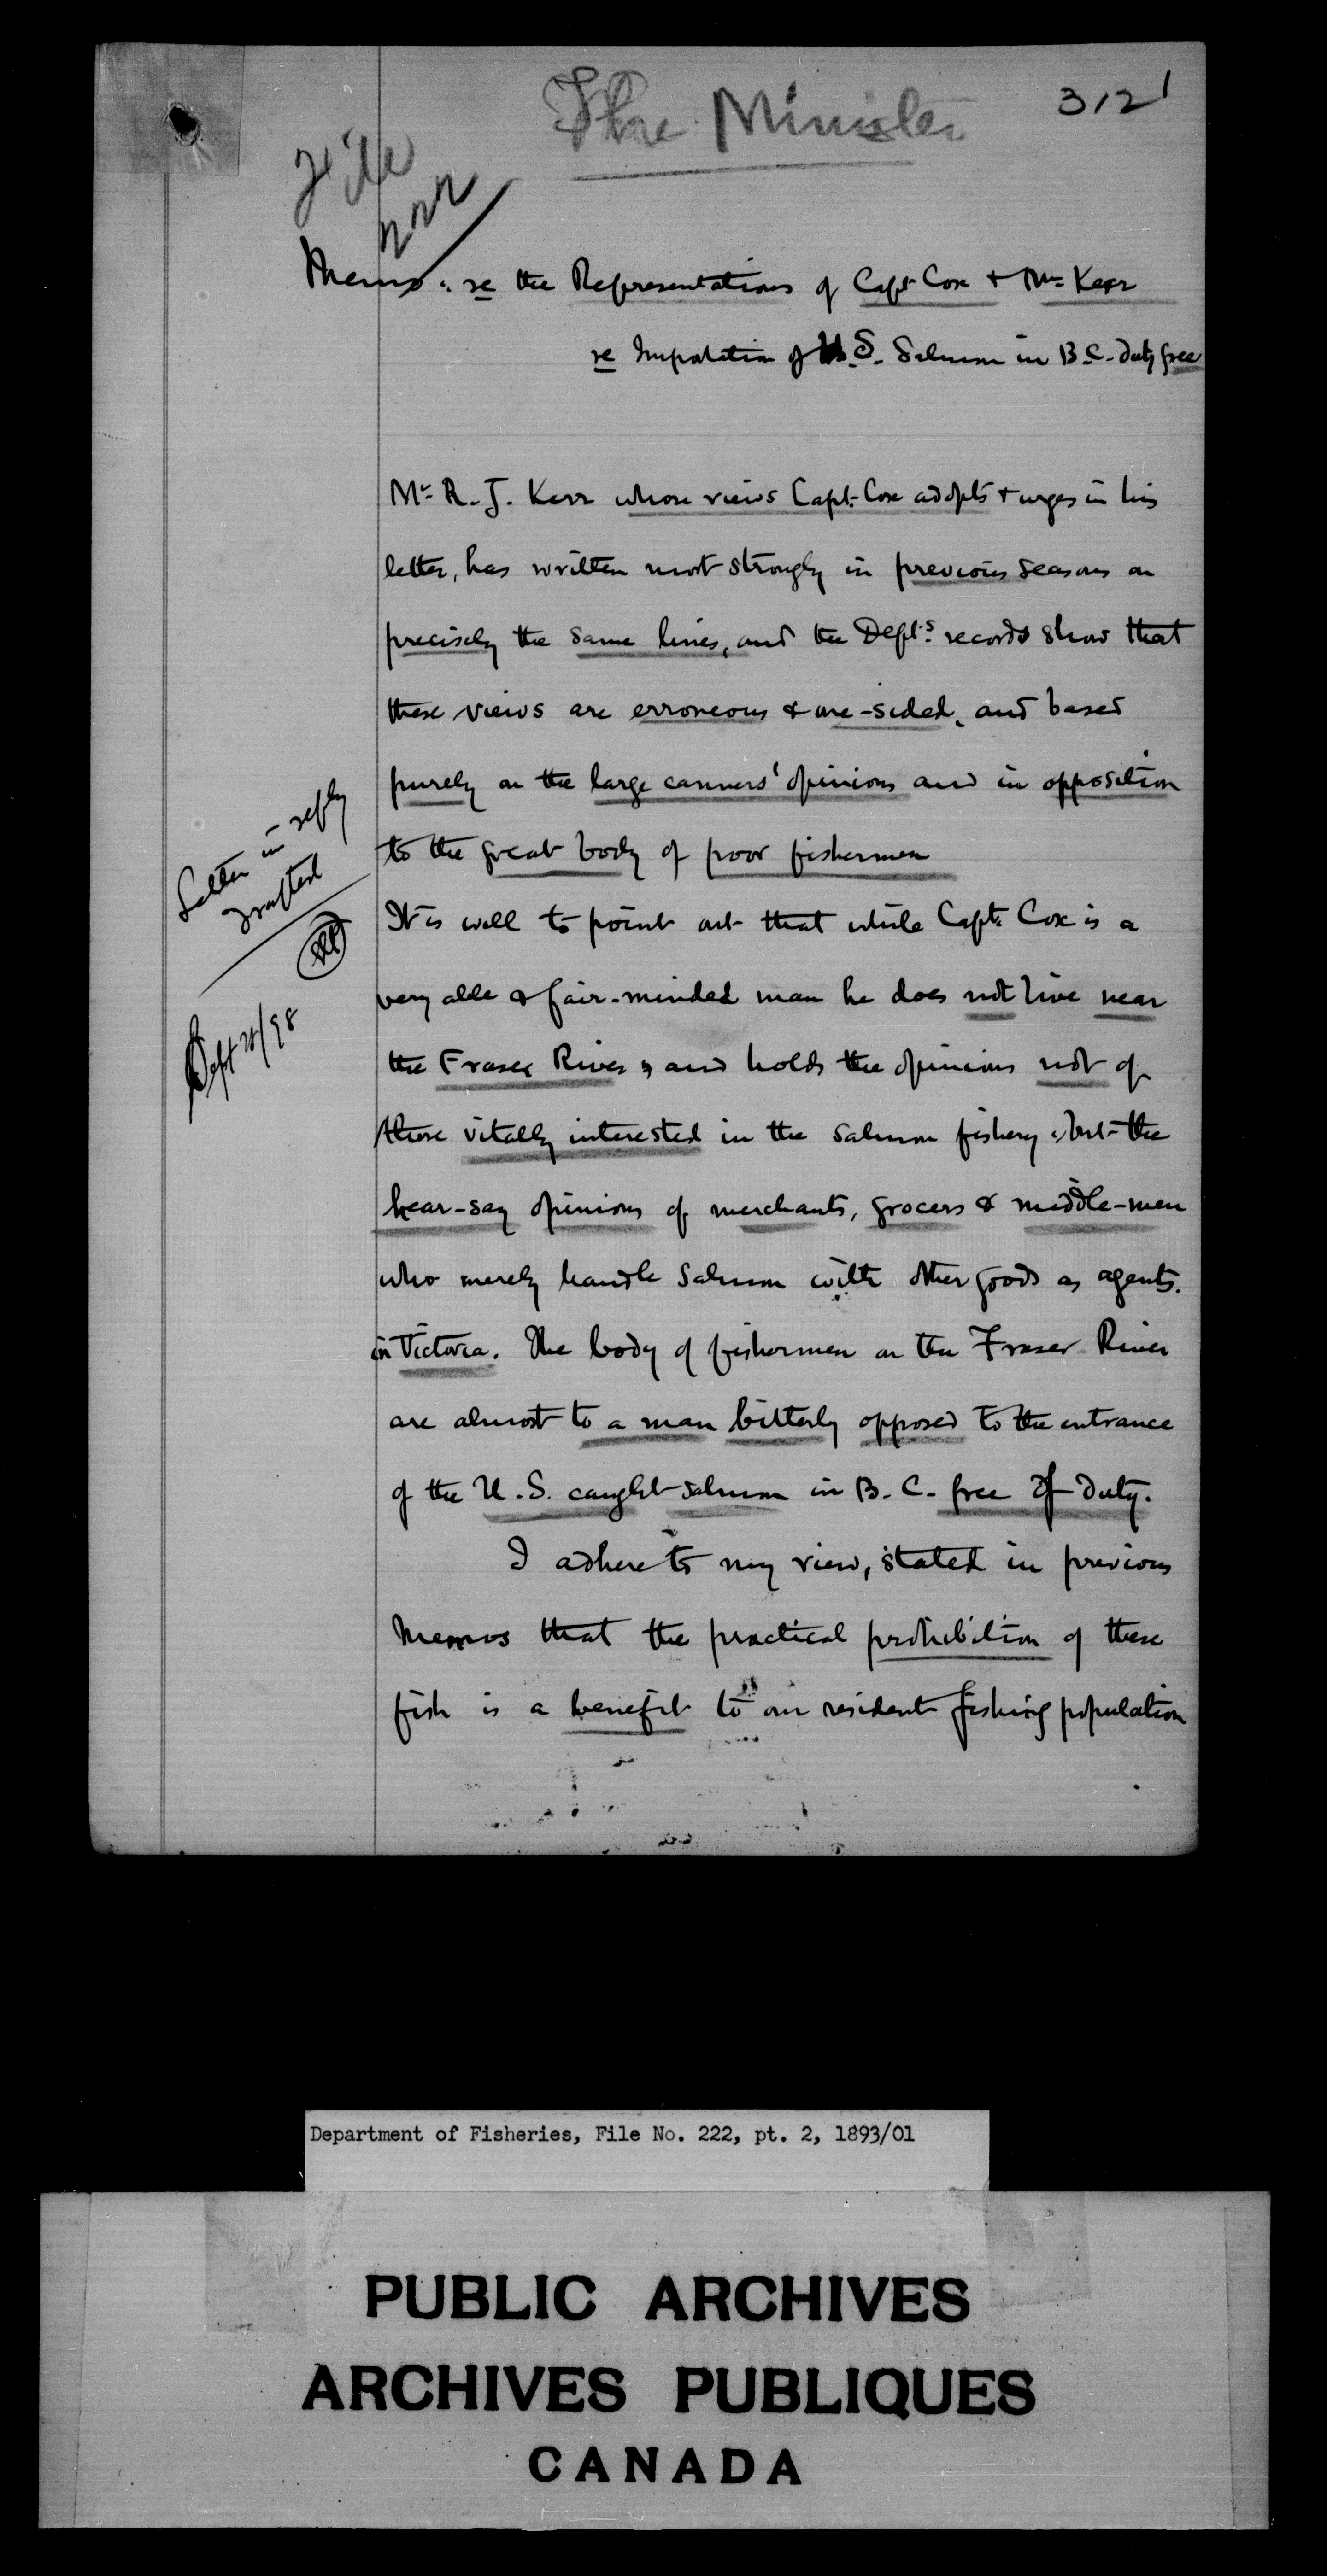 The Minister
3121
File
Memo. re the Representations of Capt Cox + Mr Kerr
re Importation of U.S. Salmon in B.C. duty free
Mr. R. J. Kerr whose views Capt. Cox adopts + urges in his
letter, has written most strongly in previous seasons on
precisely the same lines, and the Dept's. records show that
these views are erroneous & one-sided, and based
purely on the large canners' opinions and in opposition
to the great body of poor fishermen
It is well to point out that while Capt. Cox is a
very able & fair-minded man he does not live near
the Fraser River, and holds the opinions not of
those vitally interested in the salmon fishery, but the
hear-say opinions of merchants, grocers & middle-men
who merely handle salmon with other goods as agents.
in Victoria. The body of fishermen on the Fraser River
are almost to a man bitterly opposed to the entrance
of the U.S. caught salmon in B.C. free of duty.
I adhere to my view, stated in previous
memos that the practical prohibition of these
fish is a benefit to our resident fishing population
Letter in reply
drafted
Sept /98
Department of Fisheries, File No. 222, pt. 2, 1893/01
PUBLIC ARCHIVES
ARCHIVES PUBLIQUES
CANADA